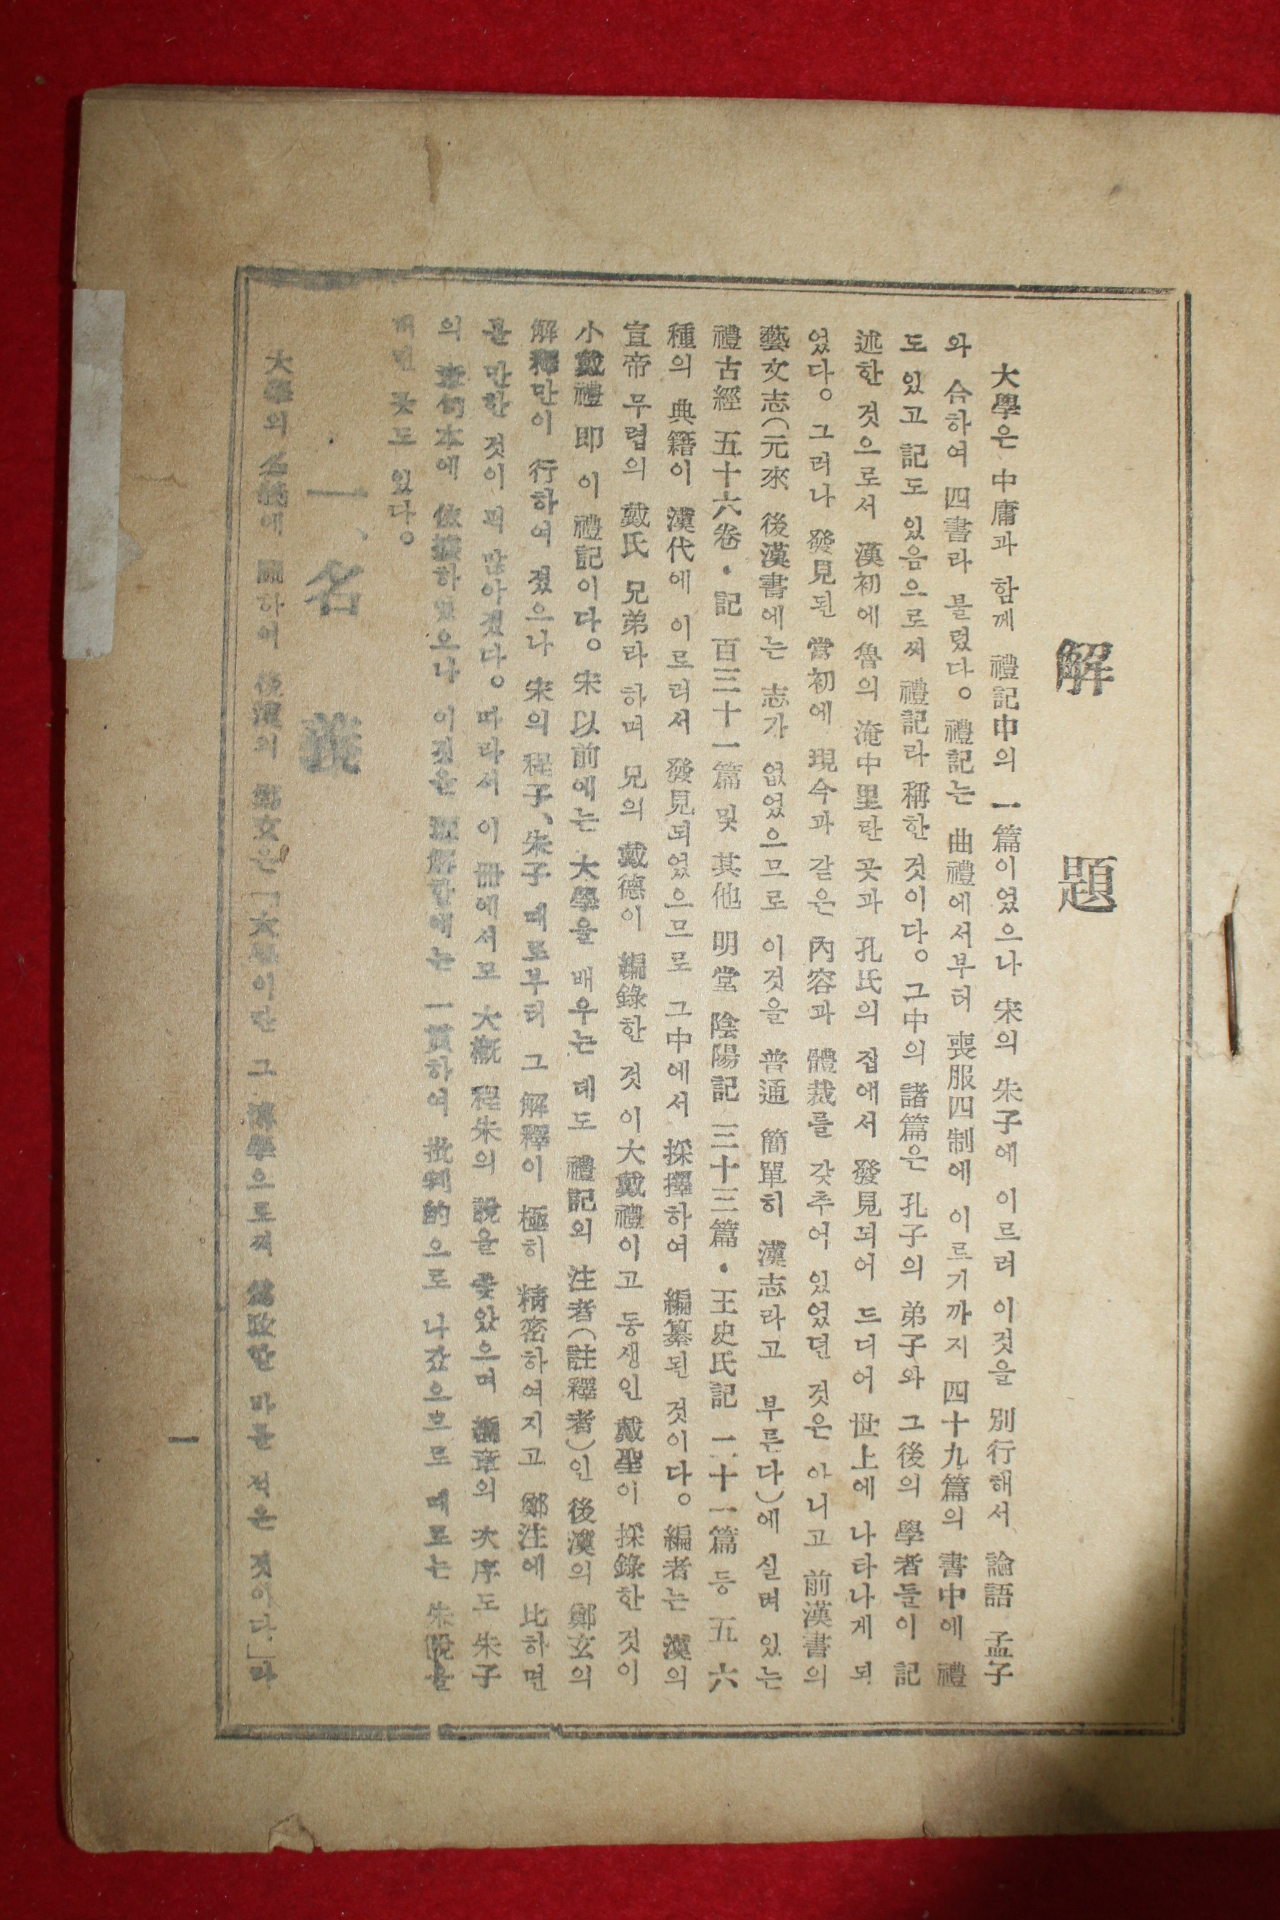 解題
大學은 中庸과 함께 禮記中의 一篇이였으나 宋의 朱子에 이르러 이것을 別行해서 論語 孟子
와 合하여 四書라 불렀다。禮記는 曲禮에서부터 喪服四制에 이르기까지 四十九篇의 書中에 禮
도 있고 記도 있음으로써 禮記라 稱한 것이다。그中의 諸篇은 孔子의 弟子와 그後의 學者들이 記
述한 것으로서 漢初에 魯의 淹中里란 곳과 孔氏의 집에서 發見되어 드디어 世上에 나타나게 되
었다。그러나 發見된 當初에 現今과 같은 內容과 體裁를 갖추어 있었던 것은 아니고 前漢書의
藝文志(元來 後漢書에는 志가 없었으므로 이것을 普通 簡單히 漢志라고 부른다)에 실며 있는
禮古經 五十六卷・記 百三十一篇 및 其他 明堂 陰陽記 三十三篇・王史氏記 二十一篇 등 五六
種의 典籍이 漢代에 이르러서 發見되었으므로 그中에서 採擇하여 編纂된 것이다。編者는 漢의
宣帝 무렵의 戴氏 兄弟라 하며 兄의 戴德이 編錄한 것이 大戴禮이고 동생인 戴聖이 採錄한 것이
小戴禮 即 이 禮記이다。宋 以前에는 大學을 배우는 데도 禮記의 注者(註釋者)인 後漢의 鄭玄의
解釋만이 行하여 졌으나 宋의 程子、朱子 때로부터 그 解釋이 極히 精密하여지고 鄭注에 比하면
볼 만한 것이 퍽 많아졌다。따라서 이 冊에서도 大槪 程朱의 說을 좇았으며 章의 次序도 朱子
의 章句本에 依據하였으나 이것을 理解함에는 一貫하여 批判的으로 나갔으므로 때로는 朱說을
버린 곳도 있다。
一、名義
大學의 名稱에 關하여 後漢의 鄭玄은「大學이란 그 博學으로써 爲政할 바를 적은 것이다」라
一